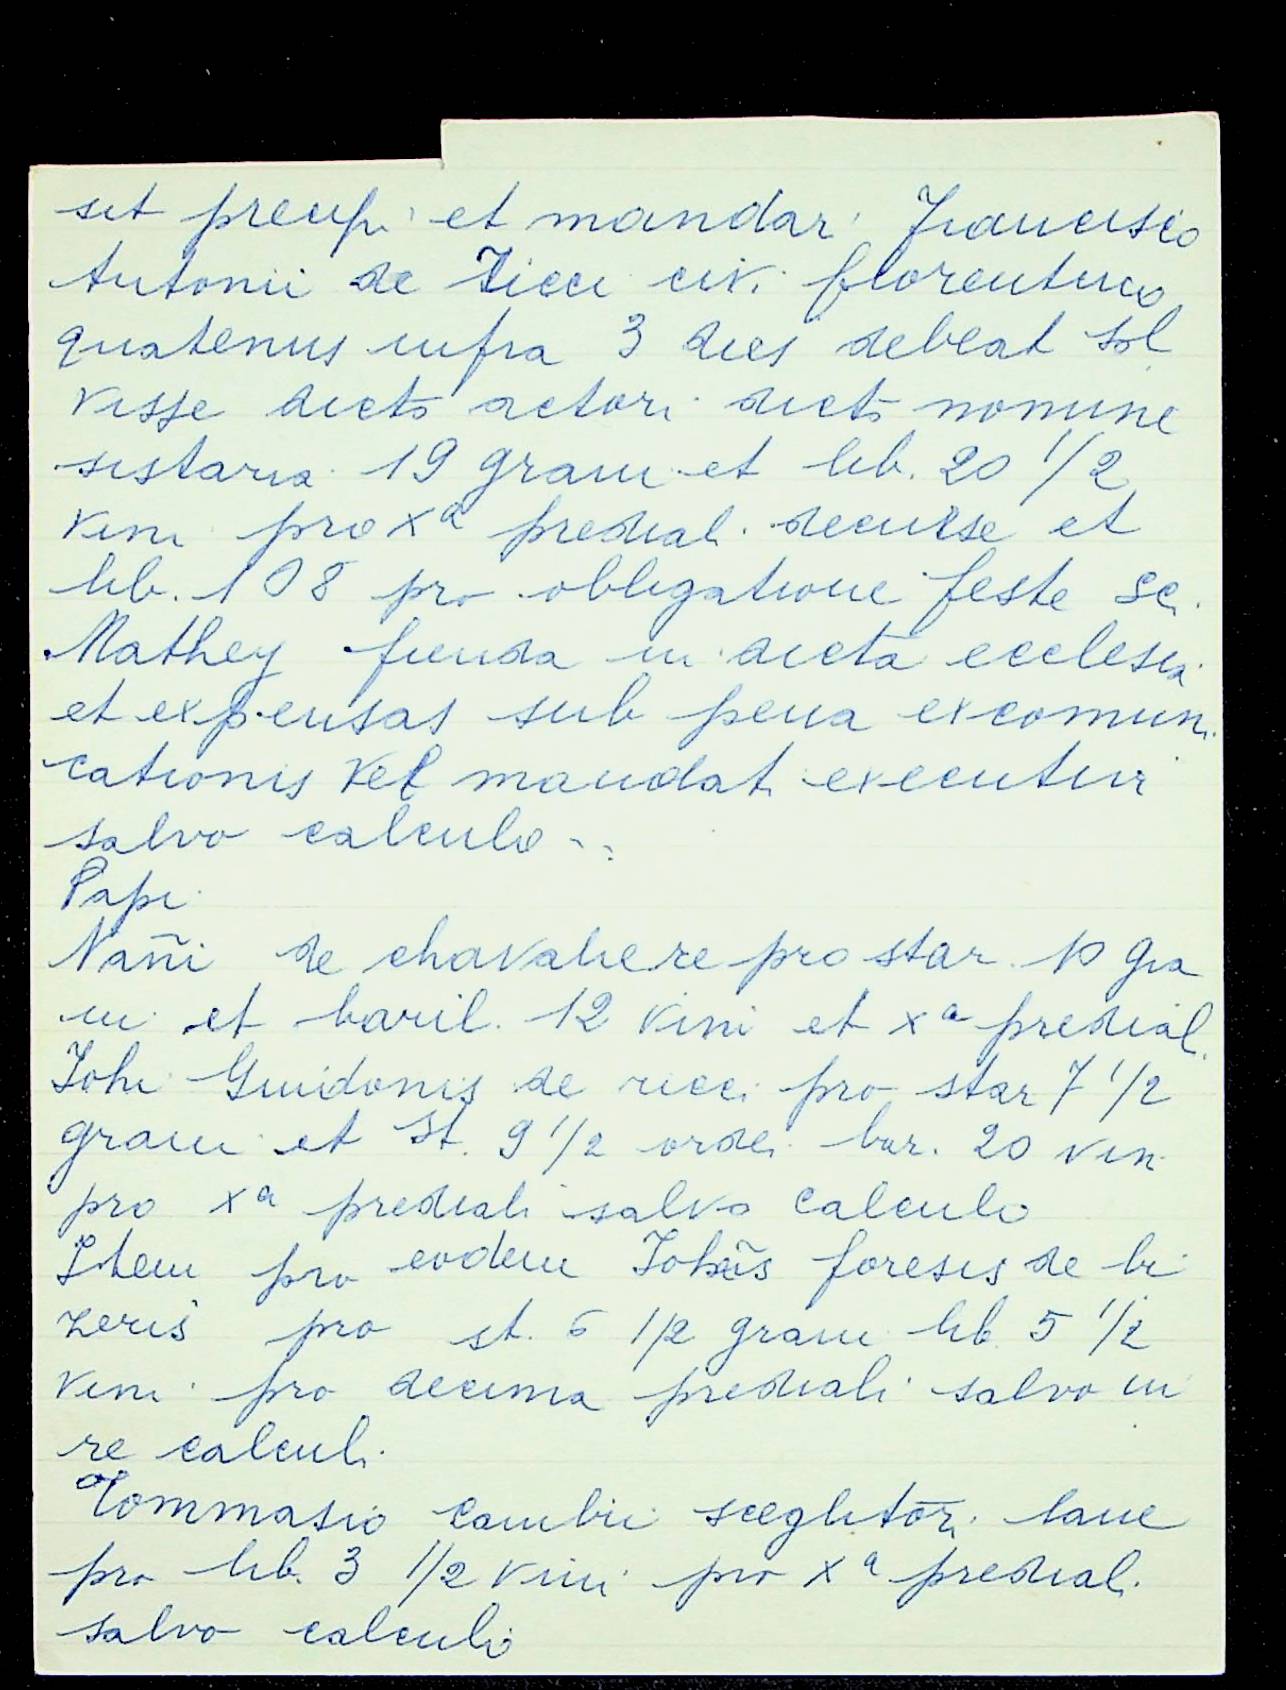 sit precip. et mandar. Francisco
Antonii de Ricci civ. florentino
quatenus infra 3 dies debeat sol
visse dicto actori dicto nomine
sistaria 19 grani et lib. 20 1/2
vini pro xª predial. decurse et
lib. 108 pro obligatione feste Sc.
Mathey fienda in dicta ecclesia
et expensas sub pena excomuni
cationis vel mandat. executivi
salvo calculo..
Papi
Nañi de chavaliere pro star. 10 gra
ni et baril. 12 vini et xª predial.
Johi Guidonis de ricci pro star 7 1/2
grani et st. 9 1/2 ordei bar. 20 vin.
pro xª prediali salvo calculo
Item pro eodem Johis foresis de bi
zeris pro st. 6 1/2 grani lib. 5 1/2
vini pro decima prediali salvo iu
re calculi.
Tommasio Cambii sceglitor. lane
pro lib. 3 1/2 vini pro xª predial.
salvo calculo